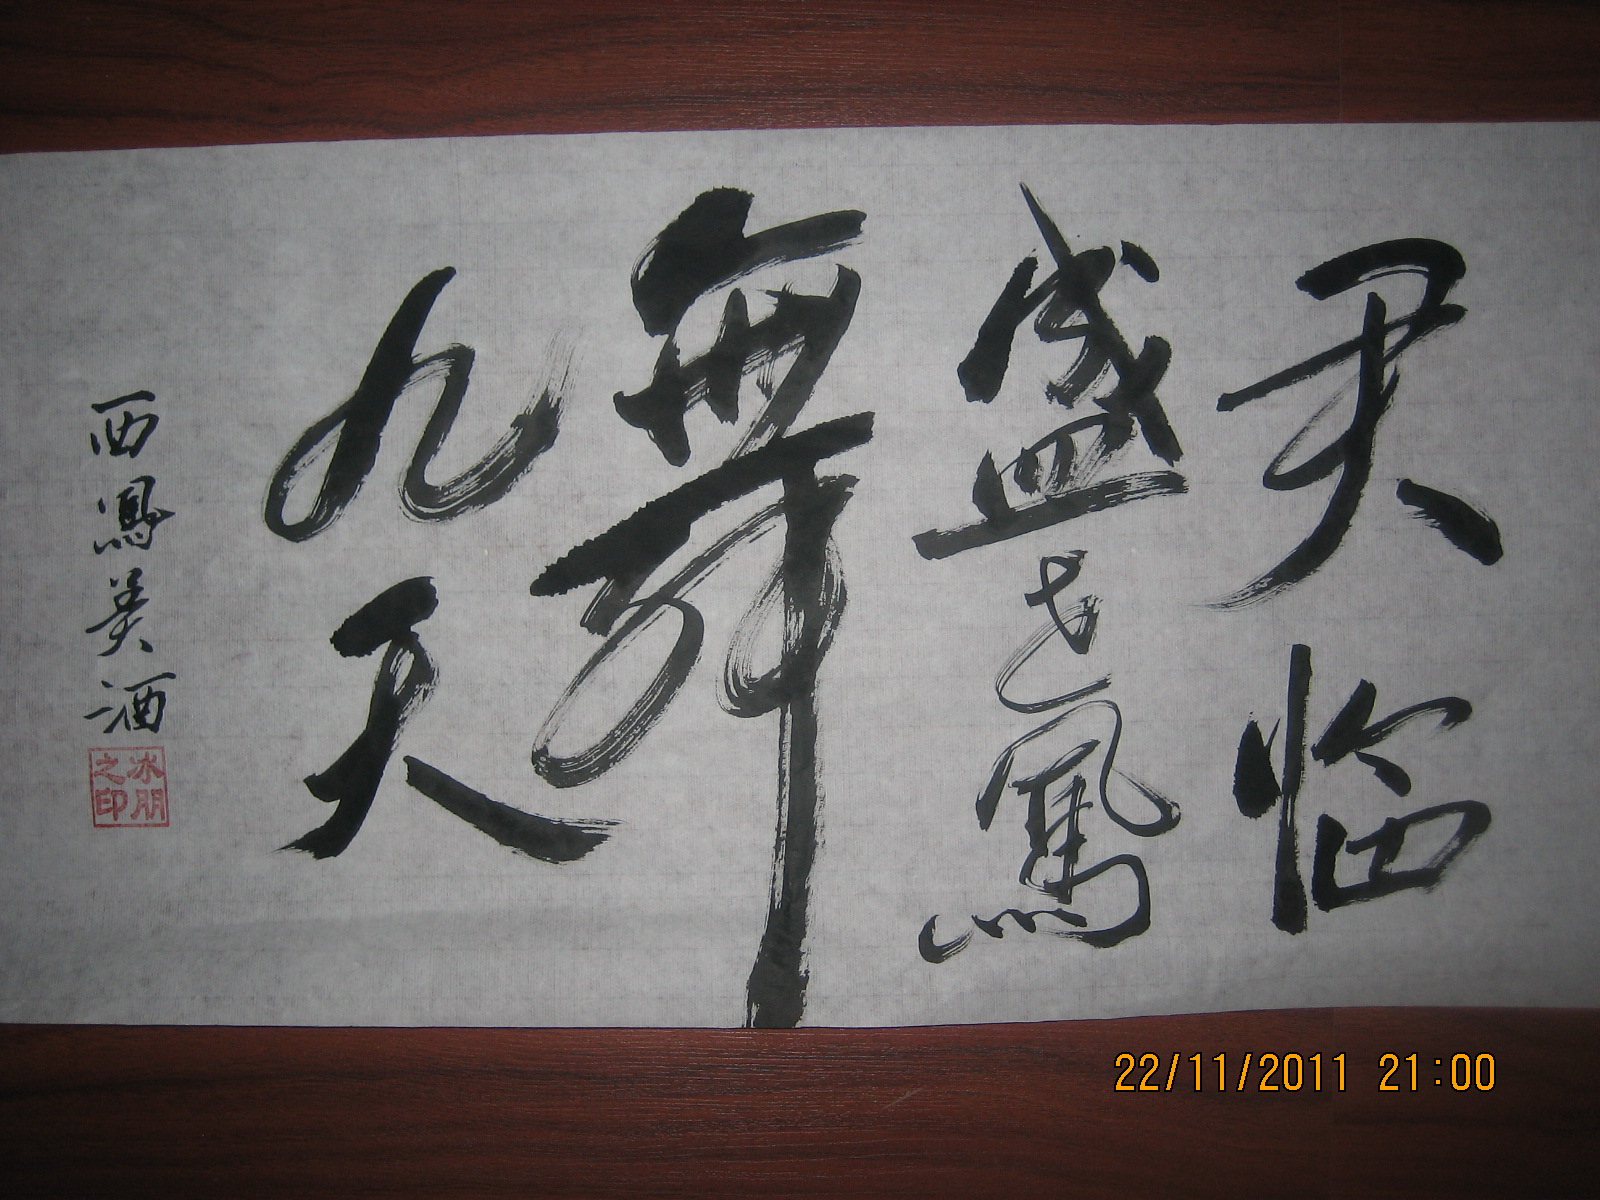 君临
盛世鳳
舞
九天
西鳳美酒
冰朋之印
22/11/2011 21:00